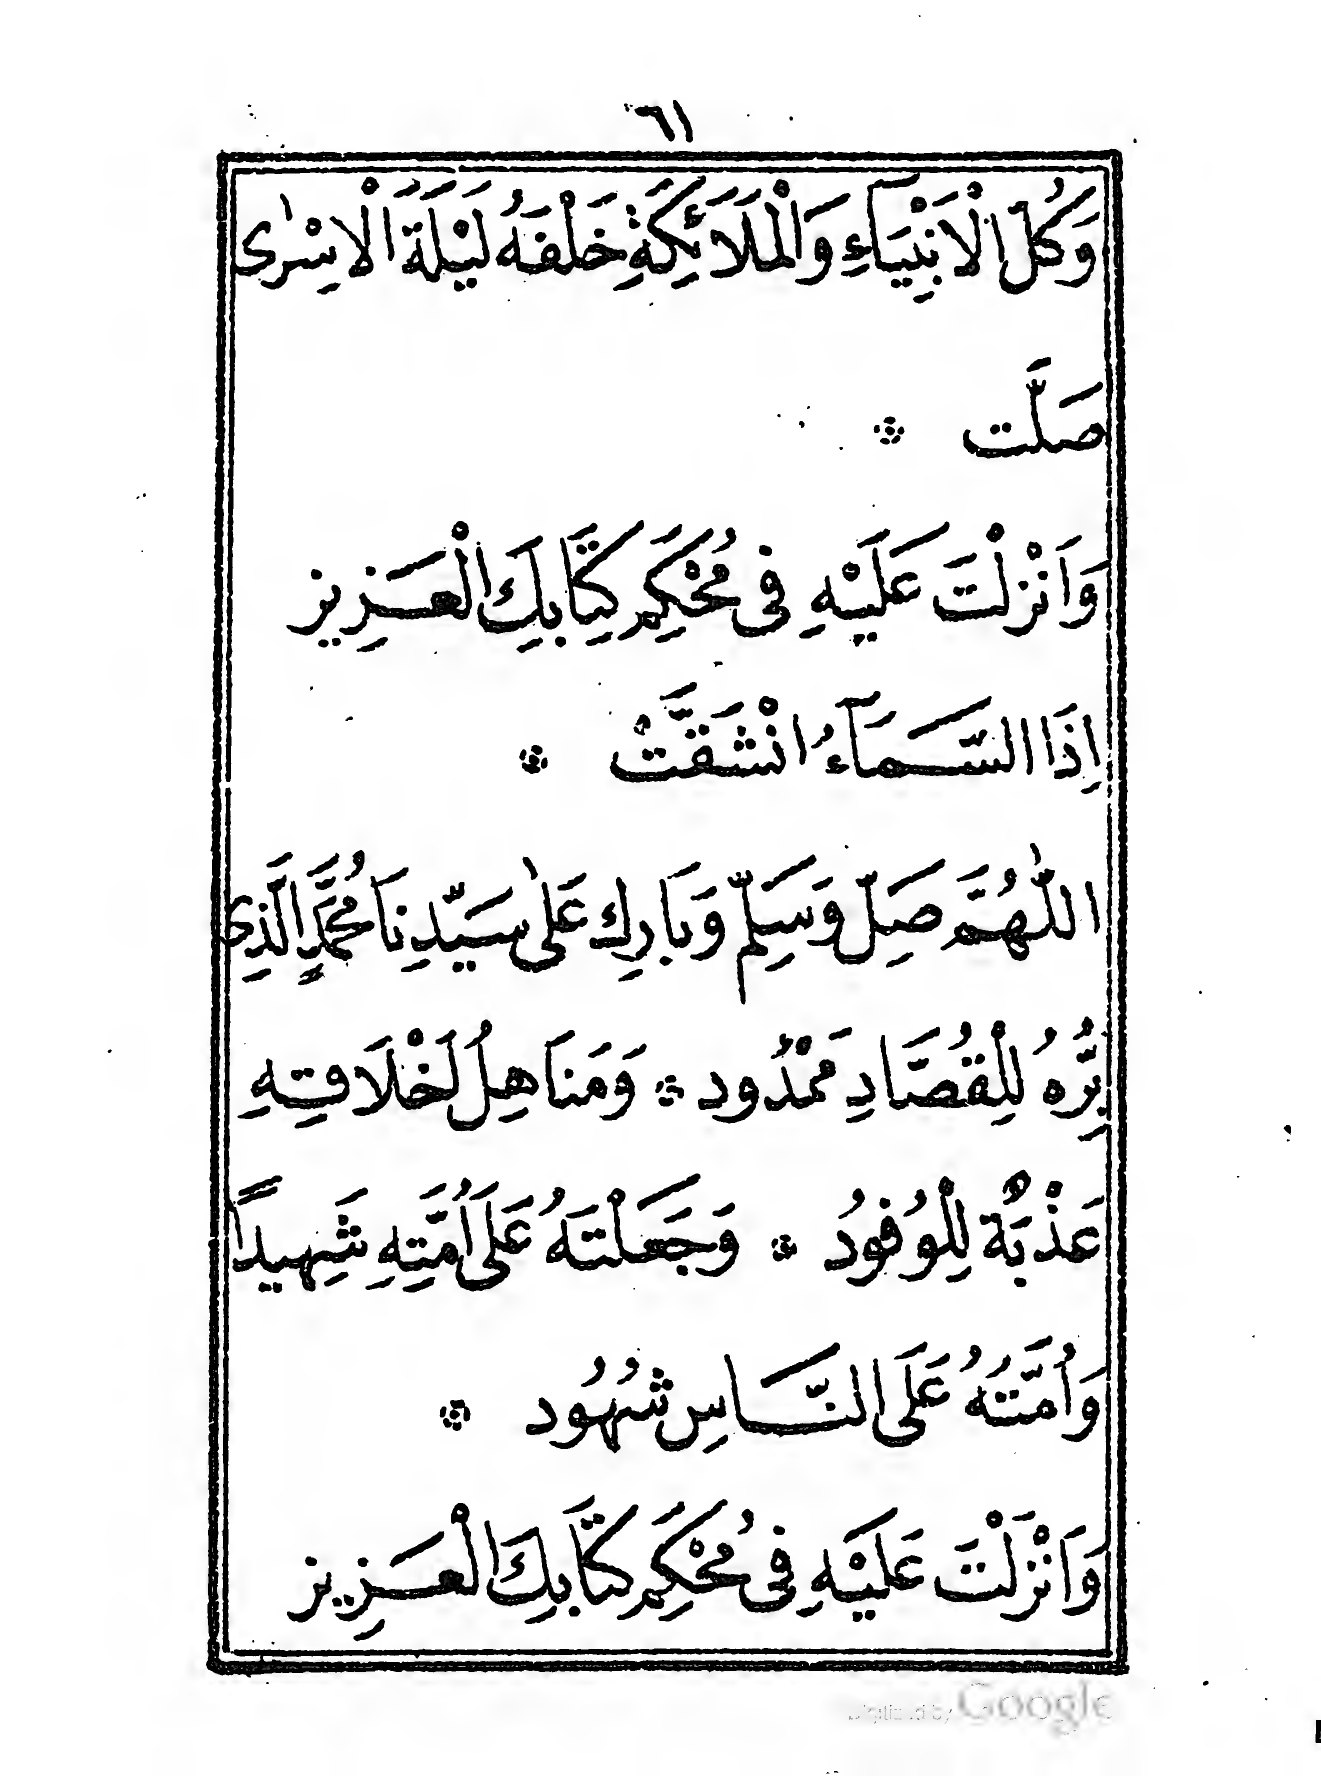 ٦١
وَكُلُّ الْاَنْبِيَآءِ وَالْمَلَائِكَةِ خَلْفَهُ لَيْلَةَ الْاِسْرٰى
صَلَّت ۞
وَاَنْزَلْتَ عَلَيْهِ فِى مُحْكَمِ كِتَابِكَ الْعَزِيزِ
اِذَا السَّمَآءُ انْشَقَّتْ ۞
اَللّٰهُمَّ صَلِّ وَسَلِّمْ وَبَارِكْ عَلٰى سَيِّدِنَا مُحَمَّدٍ الَّذِى
بِرُّهُ لِلْقُصَّادِ مَمْدُود ۞ وَمَنَاهِلُ اَخْلَاقِهِ
عَذْبَةٌ لِلْوُفُودُ ۞ وَجَعَلْتَهُ عَلَى اُمَّتِهِ شَهِيدًا
وَاُمَّتَهُ عَلَى النَّاسِ شُهُود ۞
وَاَنْزَلْتَ عَلَيْهِ فِى مُحْكَمِ كِتَابِكَ الْعَزِيزِ
Digitized by Google